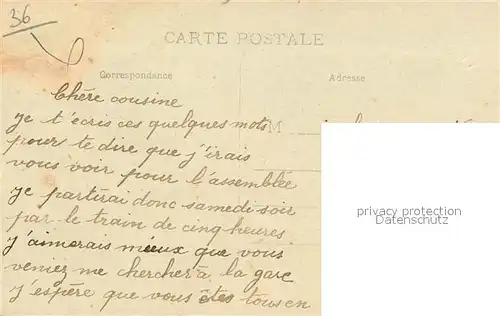 36
CARTE POSTALE
Correspondance
Adresse
Chère cousine
je t'écris ces quelques mots
M
pours te dire que j'irais
vous voir pour l'assemblée
je partirai donc samedi soir
par le train de cinq heures
j'aimerais mieux que vous
veniez me chercher à la gare
j'espère que vous êtes tous en
privacy protection
Datenschutz